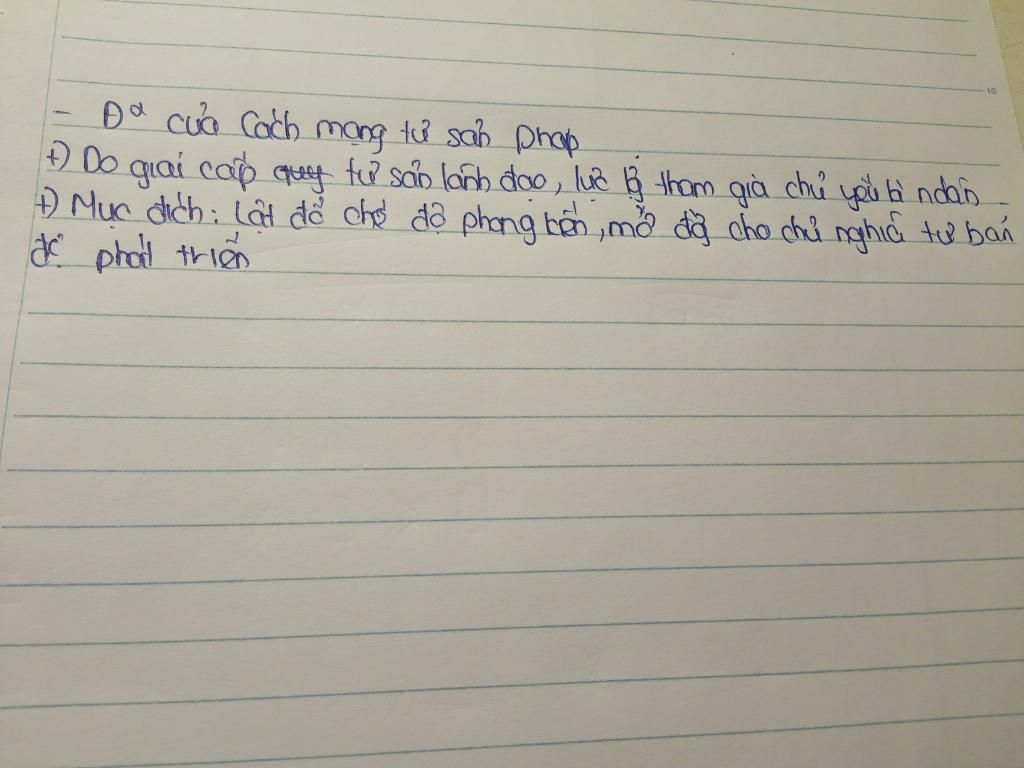 - Đđ của Cách mạng tư sản Pháp
+) Do giai cấp quy tư sản lãnh đạo, lực lg tham gia chủ yếu là ndân
+) Mục đích: Lật đổ chế độ phong kiến, mở đg cho chủ nghĩa tư bản
để phát triển
10